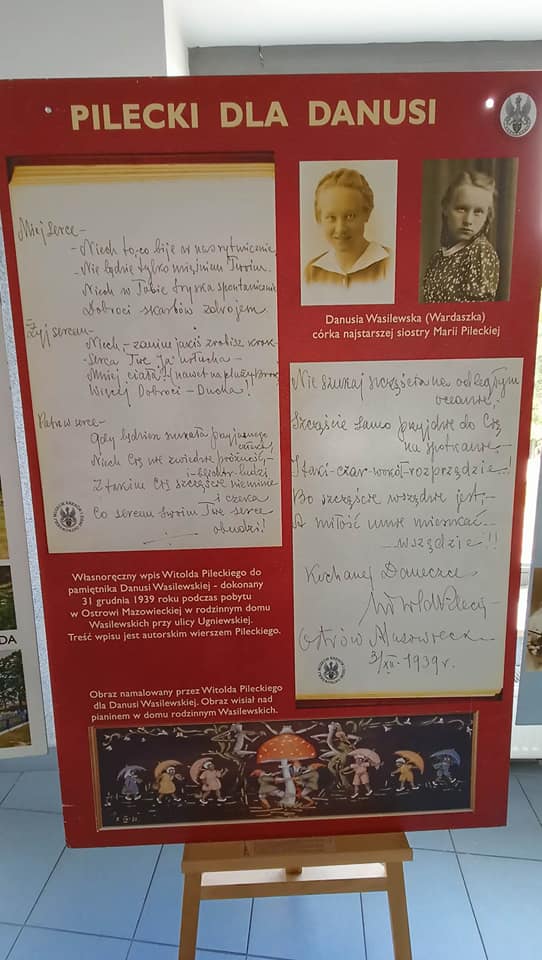 PILECKI DLA DANUSI
Miej serce –
– Niech to, co bije w nas rytmicznie,
– Nie będzie tylko mięśniem Twoim.
Niech w Tobie tryska spontanicznie
Dobroci skarbów zdrojem.
Żyj sercem –
Niech – zanim jakiś zrobisz krok –
Serca Twe ja wysłucha –
Mniej ciała! nawet na
Więcej Dobroci – Ducha!
Patrz w serce –
Gdy będziesz szukała przyjaznego
Niech Cię nie zwiedzie próżność
i ludzi
Z takim Cię szczęście nie minie
i czeka
Co sercem swoim Twe serce
obudzi!
Danusia Wasilewska (Wardaszka)
córka najstarszej siostry Marii Pileckiej
Nie szukaj szczęścia na odległym
oceanie,
Szczęście samo przyjdzie do Cię
na spotkanie
I taki – czar – wokół – rozprzędzie!
Bo szczęście wszędzie jest,
A miłość umie mieszkać –
– wszędzie!!
Kochanej Danecze
Witold Pilecki
Ostrów Mazowiecka
31/XII. 1939 r.
Własnoręczny wpis Witolda Pileckiego do
pamiętnika Danusi Wasilewskiej - dokonany
31 grudnia 1939 roku podczas pobytu
w Ostrowi Mazowieckiej w rodzinnym domu
Wasilewskich przy ulicy Ugniewskiej.
Treść wpisu jest autorskim wierszem Pileckiego.
Obraz namalowany przez Witolda Pileckiego
dla Danusi Wasilewskiej. Obraz wisiał nad
pianinem w domu rodzinnym Wasilewskich.
DA